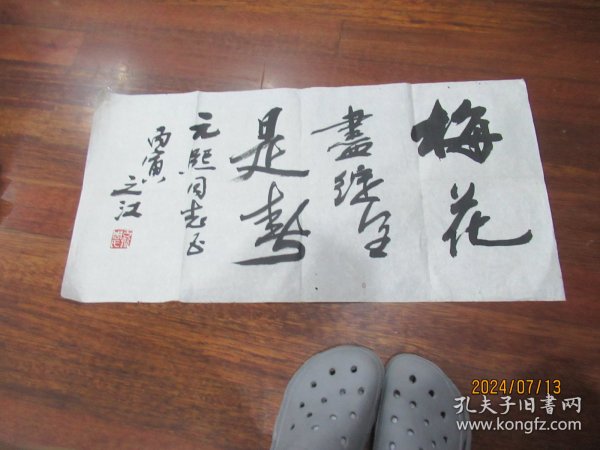 梅花
盡綻全
是春
元熙同志正
丙寅
之江
2024/07/13
孔夫子旧書网
www.kongfz.com